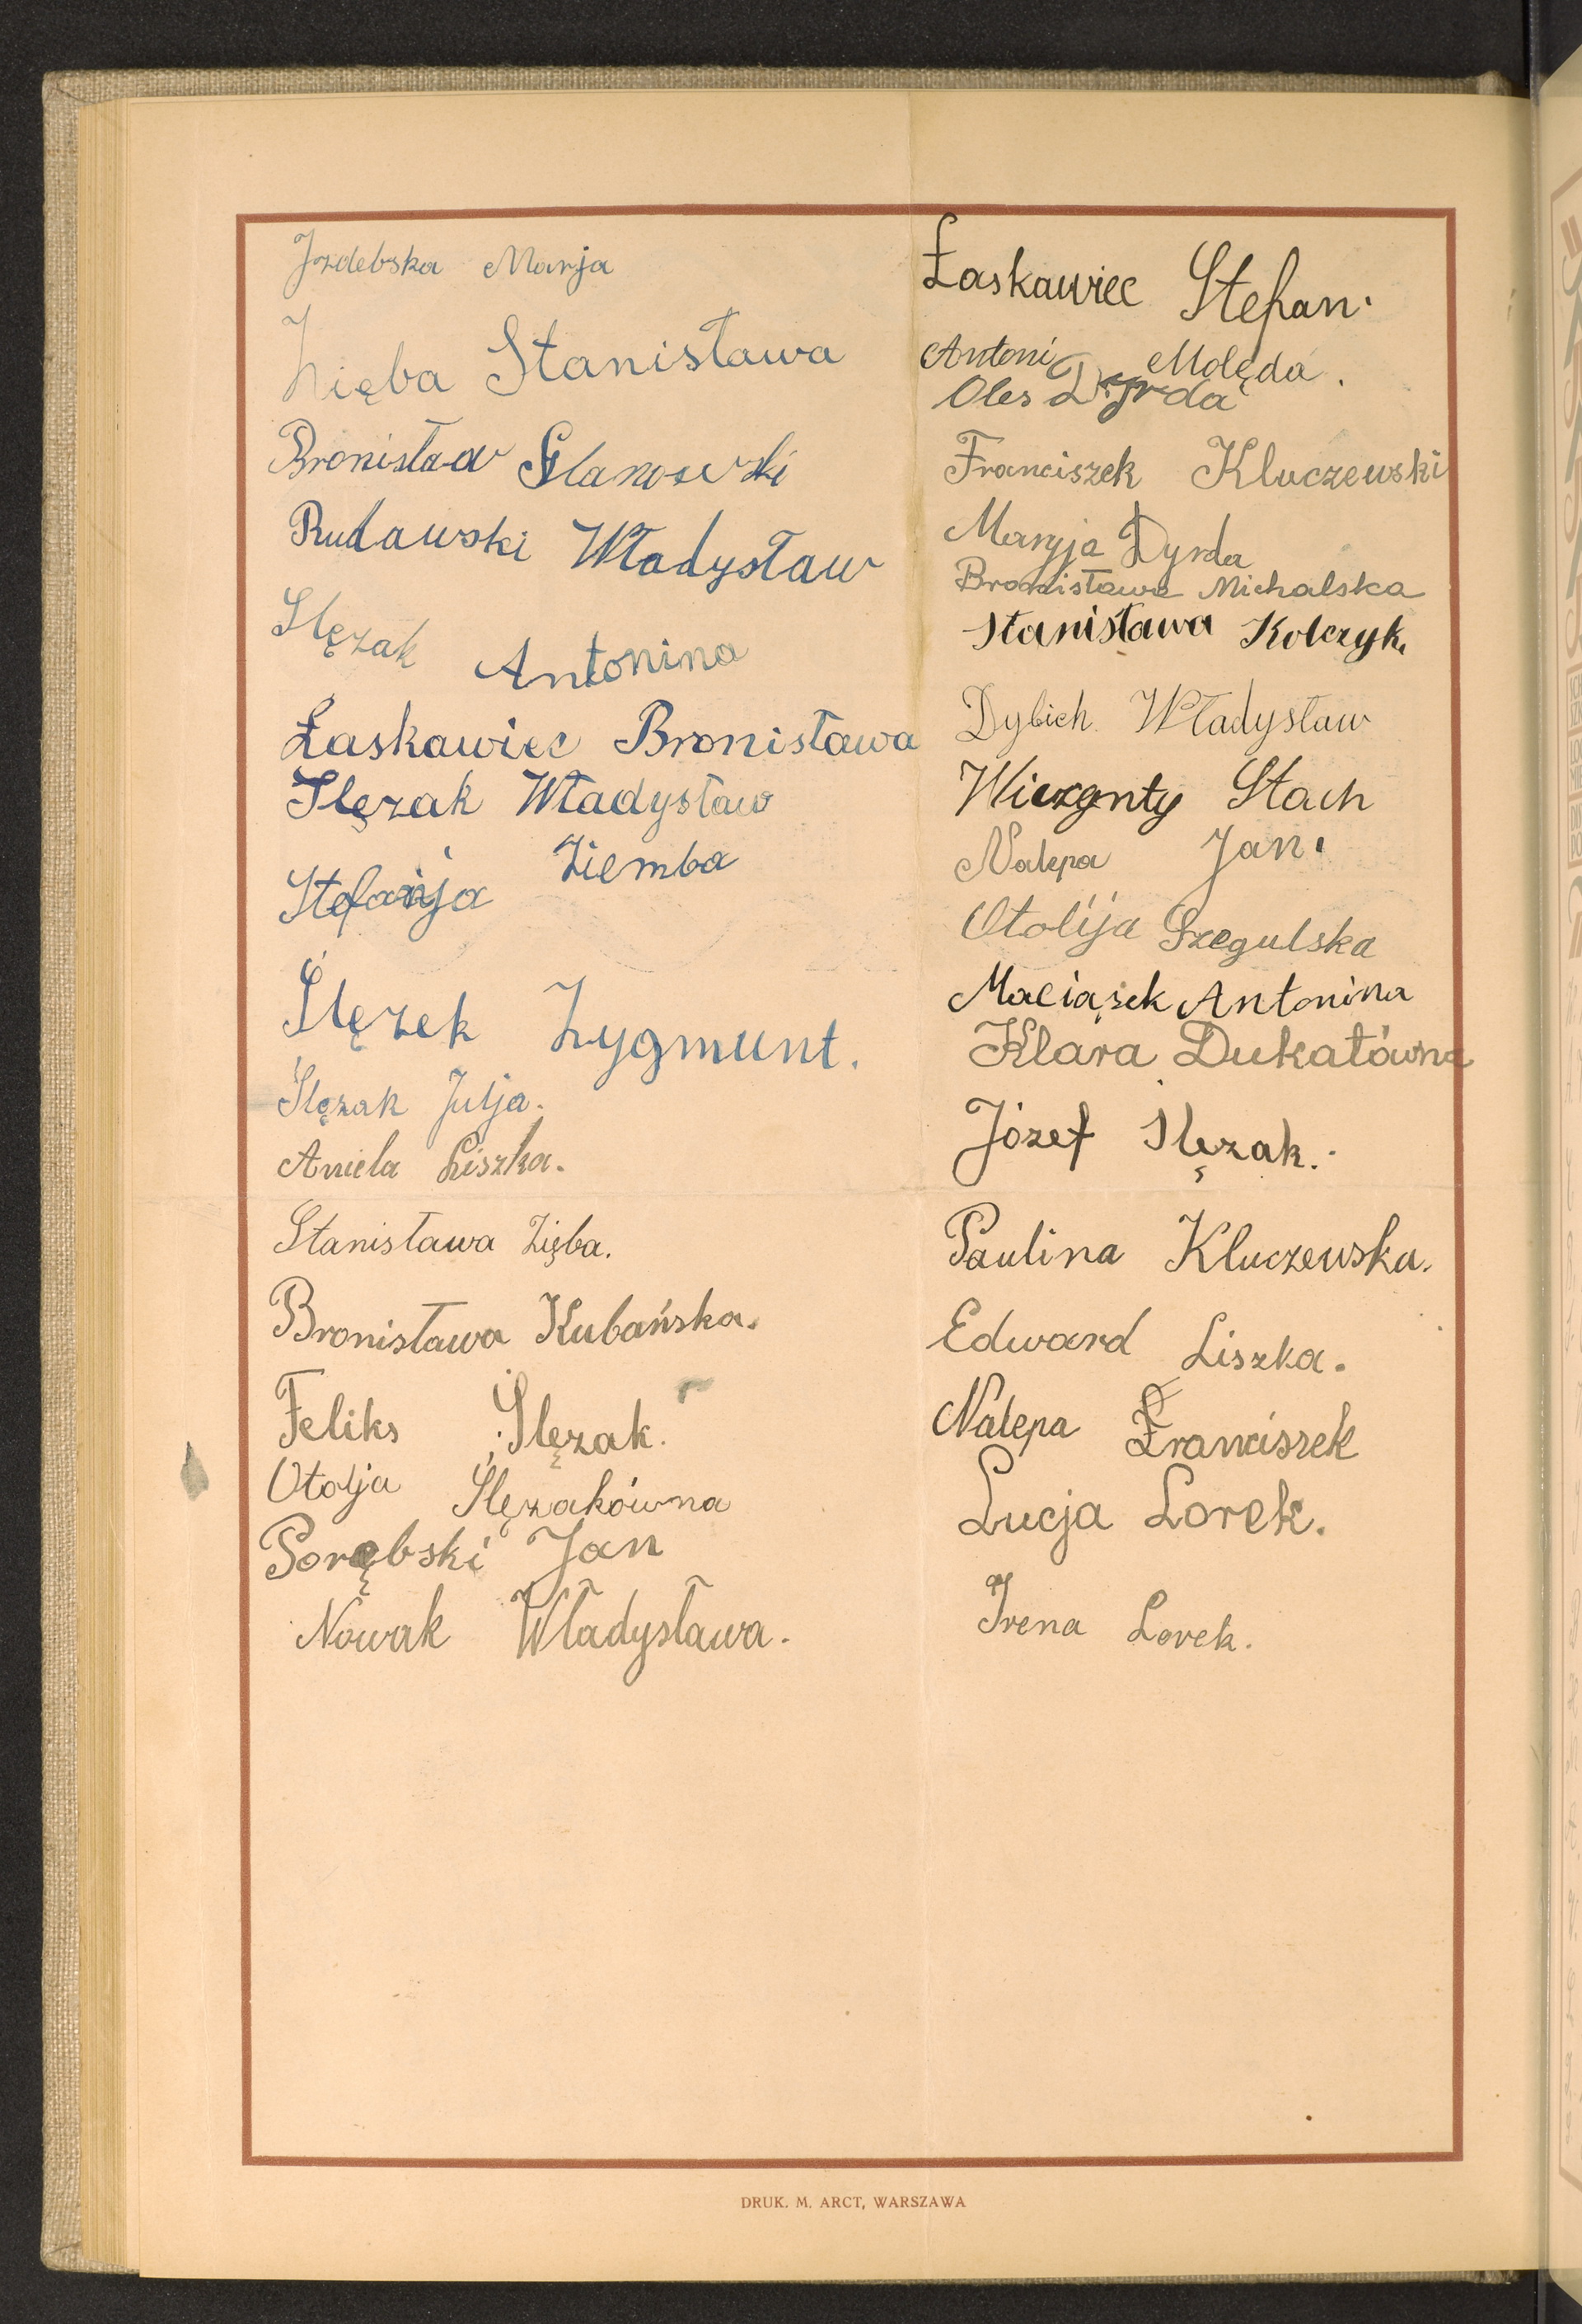 Jzdebska Marja
Zięba Stanisława
Bronisław
Rudawski Władysław
Ślęzak Antonina
Łaskawiec Bronisława
Ślęzak Władysław
Stefanja Ziemba
Ślęzek Zygmunt.
Ślęzak Julja.
Aniela Liszka.
Stanisława Zięba.
Bronisława Kubańska.
Feliks Ślęzak.
Otolja Ślęzakówna
Porębski Jan
Nowak Władysława.
Łaskawiec Stefan.
Antoni Molęda.
Oles Dyrda
Franciszek Kluczewski
Maryja Dyrda
Bronisława Michalska
Stanisława Kolczyk.
Dybich Władysław
Stach
Nalepa Jan.
Otolija Szegulska
Maciąsek Antonina
Klara Dukatówna
Józef Ślęzak.
Paulina Kluczewska.
Edward Liszka.
Nalepa Franciszek
Lucja Lorek.
Irena Lorek.
DRUK. M. ARCT, WARSZAWA